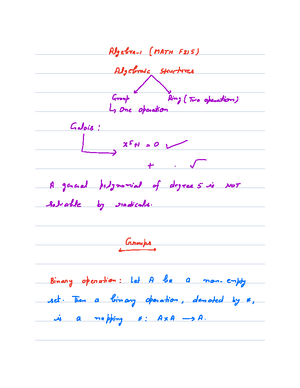 Algebra-1 (MATH F215)
Algebraic structures
Group Ring (Two operations)
↳ One operation
Galois:
x⁵+1 = 0 ✓
+ . √
A general polynomial of degree 5 is NOT
solvable by radicals.
Groups
Binary operation: Let A be a non-empty
set. Then a binary operation, denoted by *,
is a mapping *: A×A → A.